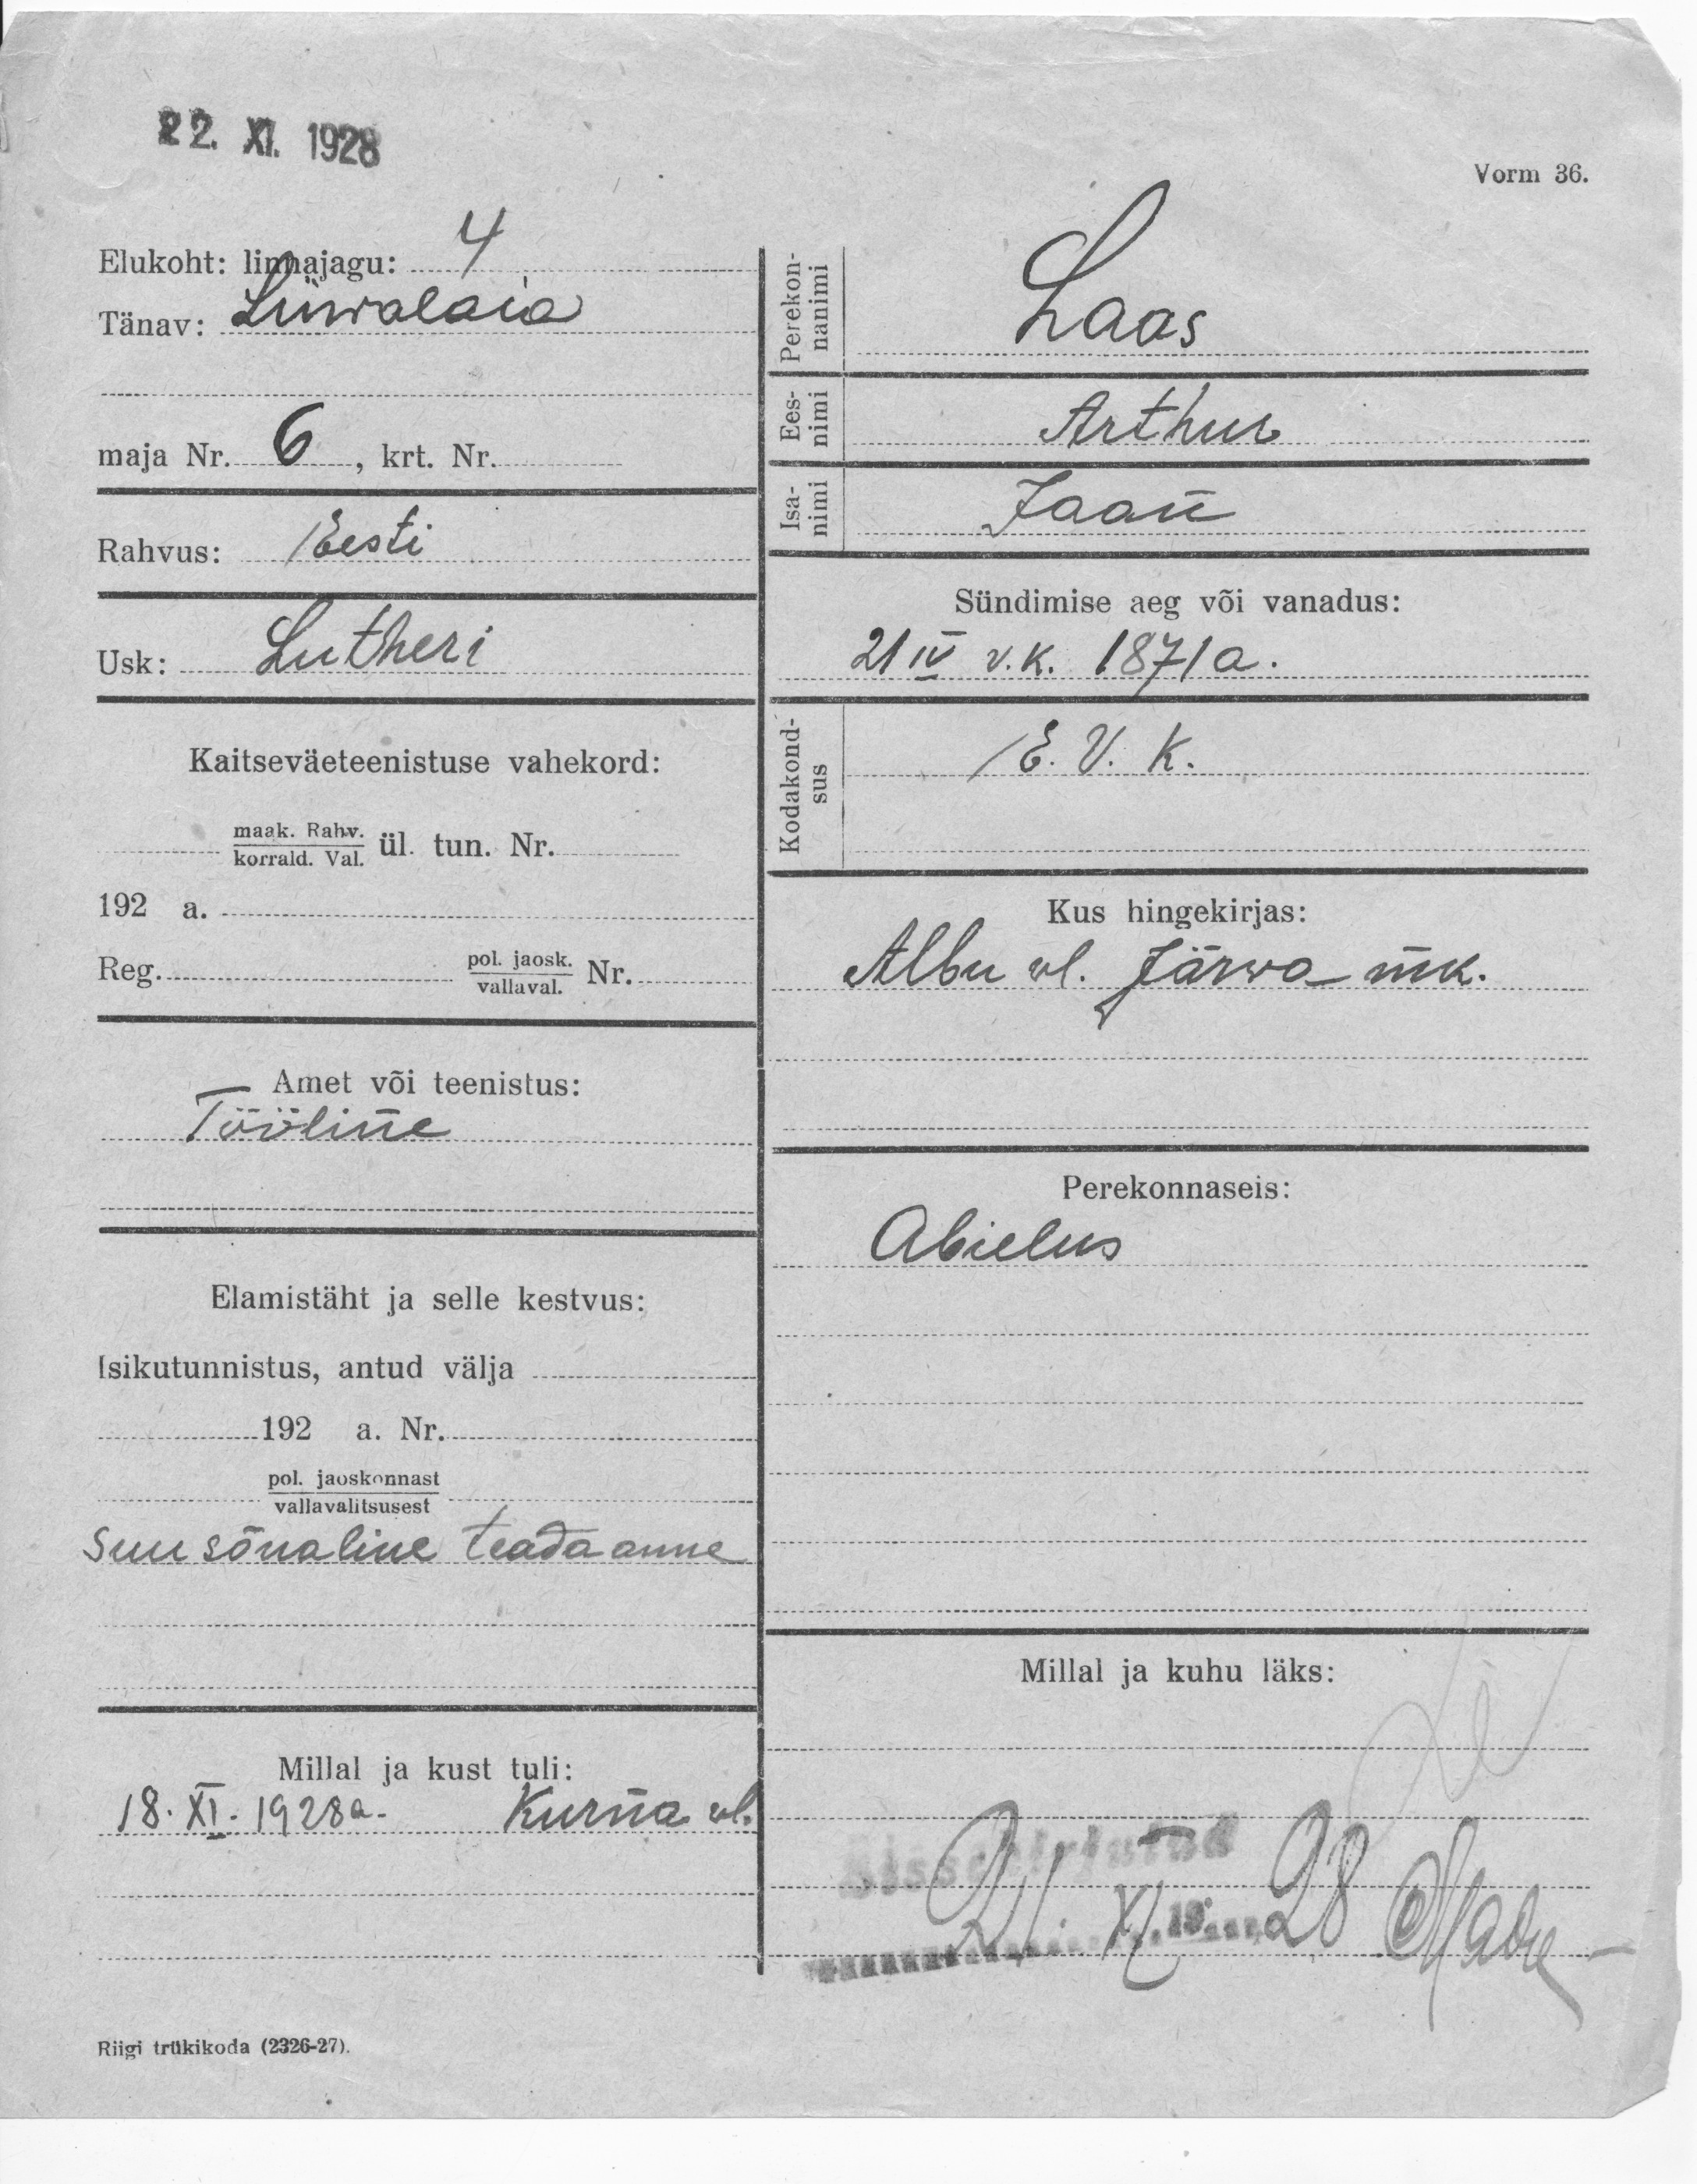 22. XI. 1928
Vorm 36.
Elukoht: linnajagu: 4
Tänav: Liiwalaia
maja Nr. 6, krt. Nr.
Rahvus: Eesti
Usk: Lutheri
Kaitseväeteenistuse vahekord:
maak. Rahv.
korrald. Val.
ül. tun. Nr.
192 a.
Reg. pol. jaosk. Nr.
vallaval.
Amet või teenistus:
Tööline
Elamistäht ja selle kestvus:
Isikutunnistus, antud välja
192 a. Nr.
pol. jaoskonnast
vallavalitsusest
Suusõnaline teadaanne
Millal ja kust tuli:
18. XI. 1928 a. Kurna vl.
Perekon-
nanimi
Laas
Ees-
nimi
Arthur
Isa-
nimi
Jaan
Sündimise aeg või vanadus:
21 IV v.k. 1871 a.
Kodakond-
sus
E. V. K.
Kus hingekirjas:
Albu vl. Järwa mk.
Perekonnaseis:
Abielus
Millal ja kuhu läks:
Sissekirjutud
21. XI. 19 28
Riigi trükikoda (2326-27).